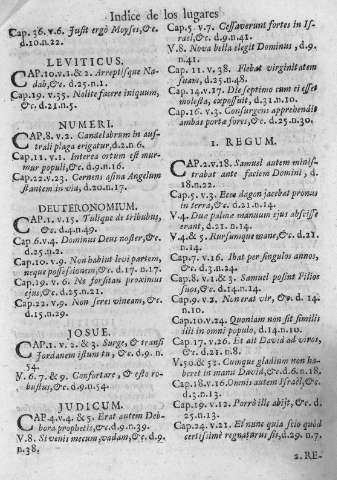 Indice de los lugares
Cap. 36. v. 6. Jusit ergò Moyses, &c.
d. 10. n. 22.
LEVITICUS.
CAP. 10. v. 1. & 2. Arreptisque Na-
dab, &c. d. 25. n. 1.
Cap. 19. v. 35. Nolite facere iniquum,
&c. d. 21. n. 5.
NUMERI.
CAP. 8. v. 2. Candelabrum in aus-
trali plaga erigatur, d. 2. n. 6.
Cap. 11. v. 1. Interea ortum est mur-
mur populi, &c. d. 9. n. 16.
Cap. 22. v. 23. Cernens asina Angelum
stantem in via, d. 20. n. 17.
DEUTERONOMIUM.
CAP. 1. v. 15. Tulique de tribubus,
&c. d. 4. n. 49.
Cap. 6. v. 4. Dominus Deus noster, &c.
d. 25. n. 2.
Cap. 10. v. 9. Non habuit levi partem,
neque possessionem, &c. d. 17. n. 17.
Cap. 19. v. 6. Ne forsitan proximus
ejus, &c. d. 25. n. 21.
Cap. 22. v. 9. Non seres vineam, &c.
d. 15. n. 29.
JOSUE.
CAP. 1. v. 2. & 3. Surge, & transi
Jordanem istum tu, &c. d. 9. n.
54.
V. 6. 7. & 9. Confortare, & esto ro-
bustus, &c. d. 9. n. 54.
JUDICUM.
CAP. 4. v. 4. & 5. Erat autem Deb-
bora prophetis, &c. d. 9. n. 39.
V. 8. Si venis mecum, vadam, &c. d. 9.
n. 38.
Cap. 5. v. 7. Cessaverunt fortes in Is-
rael, &c. d. 9. n. 41.
V. 8. Nova bella elegit Dominus, d. 9.
n. 41.
Cap. 11. v. 38. Flebat virginitatem
suam, d. 25. n. 48.
Cap. 14. v. 17. Die septimo cum ei esset
molesta, exposuit, d. 31. n. 10.
Cap. 16. v. 3. Consurgens apprehendit
ambas portæ fores, &c. d. 25. n. 30.
1. REGUM.
CAP. 2. v. 18. Samuel autem minis-
trabat ante faciem Domini, d.
18. n. 22.
Cap. 5. v. 3. Ecce dagon jacebat pronus
in terra, &c. d. 21. n. 14.
V. 4. Duæ palmæ manuum ejus abscisse
erant, d. 21. n. 14.
V. 4. & 5. Rursumque mane, &c. d. 21.
n. 14.
Cap. 7. v. 16. Ibat per singulos annos,
&c. d. 3. n. 24.
Cap. 8. v. 1. & 3. Samuel posuit Filios
suos, &c. d. 14. n. 10.
Cap. 9. v. 2. Non erat vir, &c. d. 14.
n. 10.
Cap. 10. v. 24. Quoniam non sit similis
illi in omni populo, d. 14. n. 10.
Cap. 17. v. 26. Et ait David ad viros,
&c. d. 21. n. 8.
V. 50. & 52. Cumque gladium non ha-
beret in manu David, &c. d. 6. n. 18.
Cap. 18. v. 16. Omnis autem Israël, &c.
d. 3. n. 13.
Cap. 19. v. 12. Porrò ille abijt, &c. d.
25. n. 13.
Cap. 24. v. 21. Et nunc quia scio quòd
certissimè regnaturus sis, d. 29. n. 7.
2. RE-